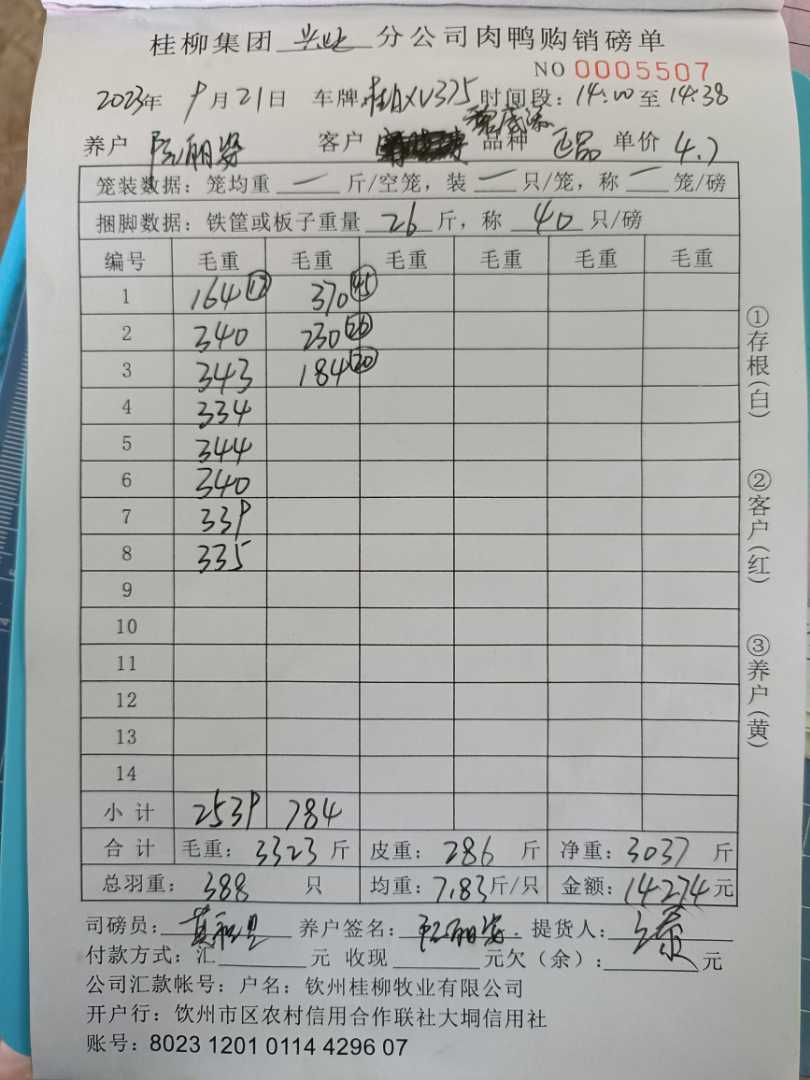 桂柳集团 兴业 分公司肉鸭购销磅单
NO 0005507
2023年 9月21日 车牌:桂AXV375 时间段: 14:00 至 14:38
养户 阮丽姿 客户 品种 正品 单价 4.7
笼装数据: 笼均重 一 斤/空笼, 装 一 只/笼, 称 一 笼/磅
捆脚数据: 铁筐或板子重量 26 斤, 称 40 只/磅
编号 毛重 毛重 毛重 毛重 毛重 毛重
1 164 ⑫ 370 ㊺
2 340 230 ㉖
3 343 184 ⑳
4 334
5 344
6 340
7 339
8 335
9
10
11
12
13
14
小计 2539 784
合计 毛重: 3323 斤 皮重: 286 斤 净重: 3037 斤
总羽重: 388 只 均重: 7.83斤/只 金额: 14274元
司磅员: 养户签名: 阮丽姿 提货人:
付款方式: 汇 元 收现 元欠(余): 元
公司汇款帐号: 户名: 钦州桂柳牧业有限公司
开户行: 钦州市区农村信用合作联社大垌信用社
账号: 8023 1201 0114 4296 07
①存根(白)
②客户(红)
③养户(黄)